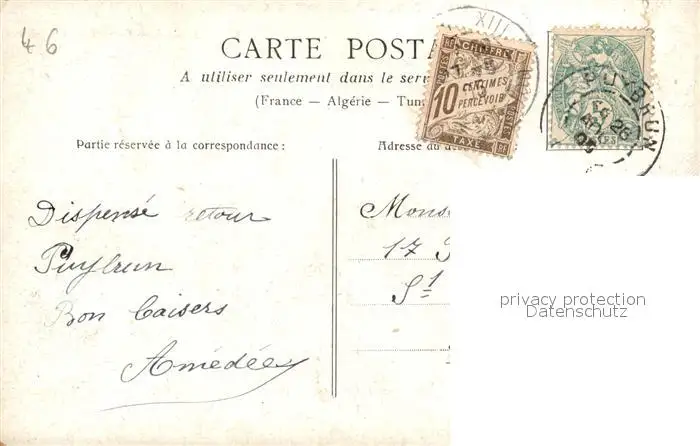 46
CARTE POST
A utiliser seulement dans le serv
(France — Algérie — Tun
Partie réservée à la correspondance :
Adresse du
CHIFFRE
10 CENTIMES
A PERCEVOIR
TAXE
XIII
PUYBRUN
26
Dispensé retour
Puybrun
Bon Baisers
Amédée
Mons
17
St
privacy protection
Datenschutz